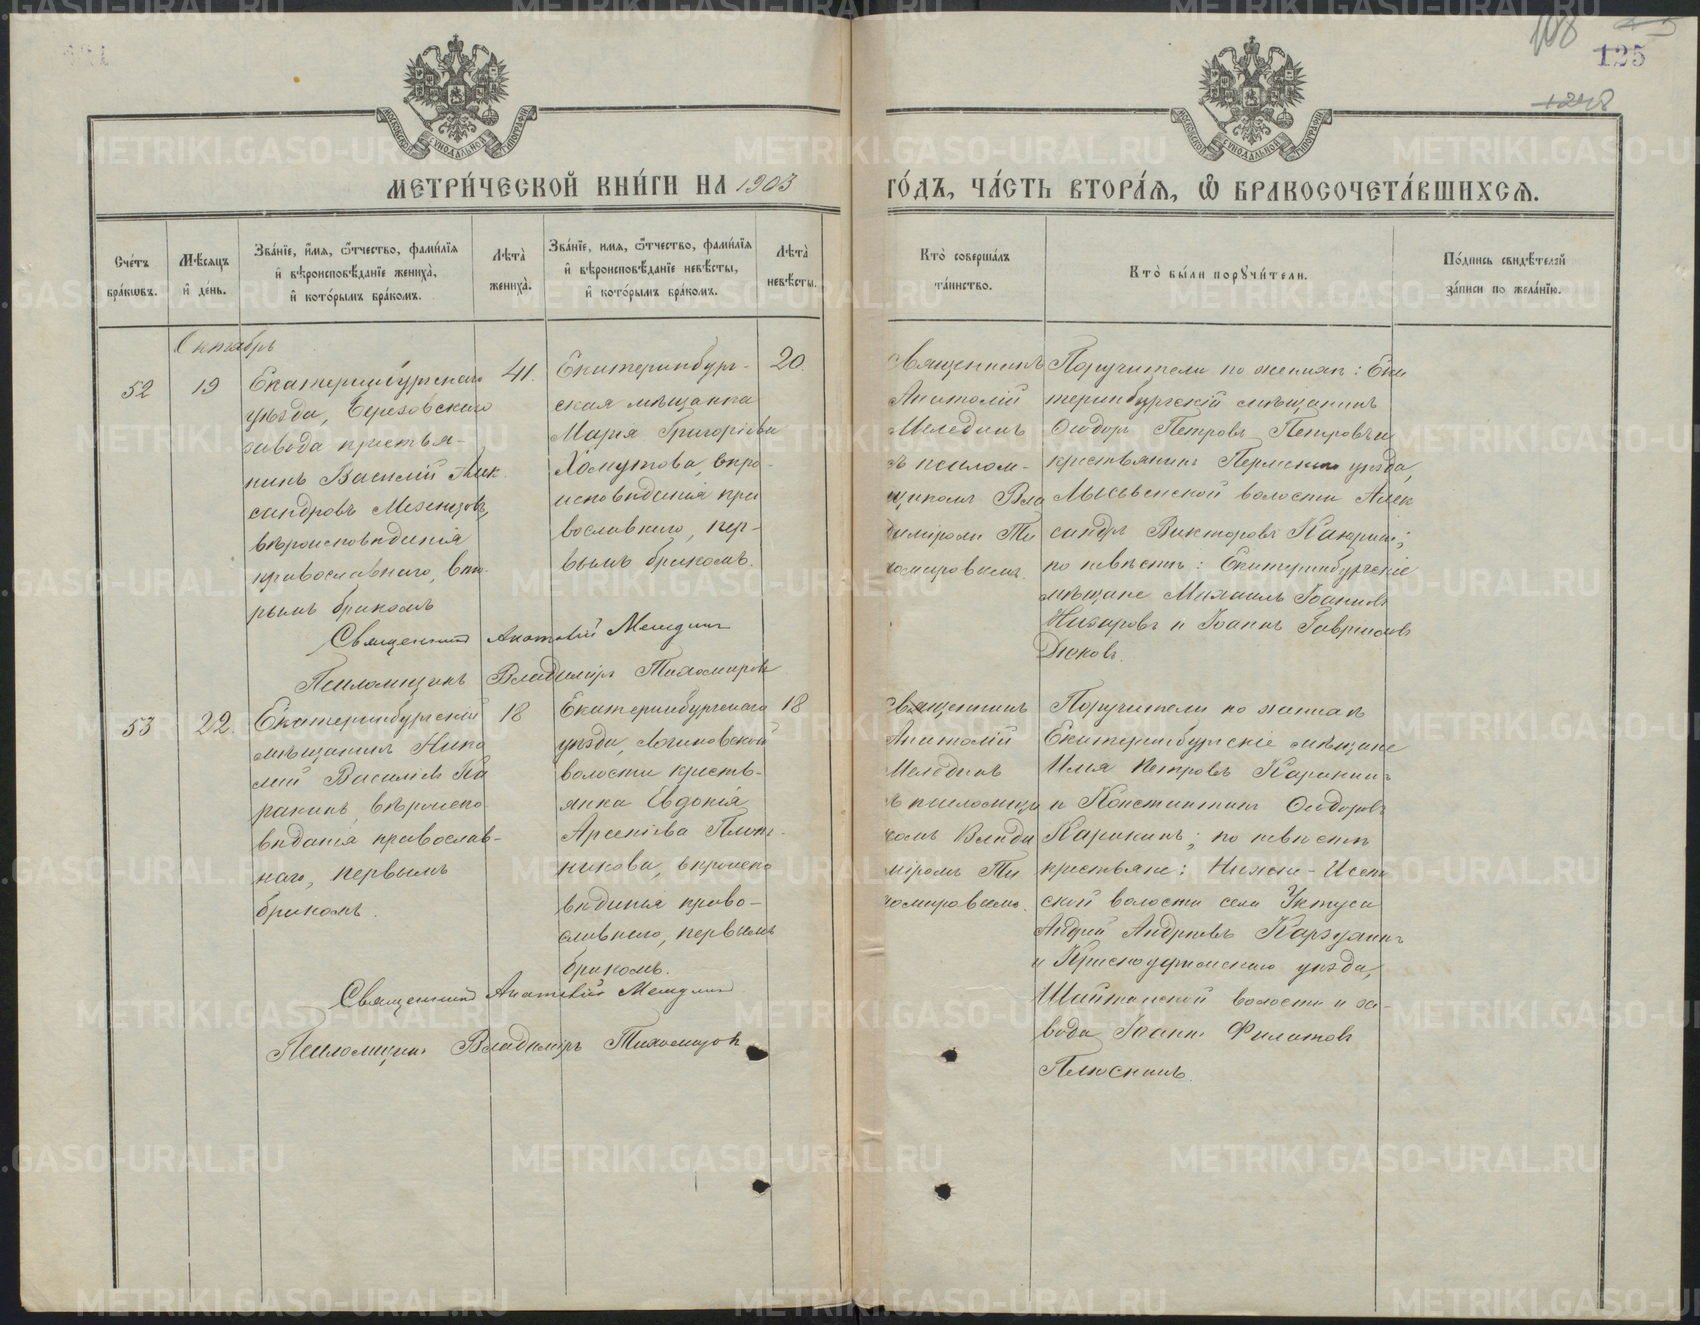 108
125
1248
МОСКОВСКОЙ СѴНОДАЛЬНОЙ ТИПОГРАФІИ
МОСКОВСКОЙ СѴНОДАЛЬНОЙ ТИПОГРАФІИ
МЕТРИ́ЧЕСКОЙ КНИ́ГИ НА 1903
ГО́ДЪ, ЧА́СТЬ ВТОРА́Я, Ѡ БРАКОСОЧЕТА́ВШИХСЯ.
Сче́тъ бра́кѡвъ.
Мѣ́сяцъ и҆ де́нь.
Зва́нїе, и҆́мя, ѻ҆́тчество, фами́лїя
и҆ вѣроисповѣ́данїе жениха̀,
и҆ кото́рымъ бра́комъ.
Лѣта̀ жениха̀.
Зва́нїе, имя, ѻ҆́тчество, фами́лїя
и҆ вѣроисповѣ́данїе невѣ́сты,
и҆ кото́рымъ бра́комъ.
Лѣта̀ невѣ́сты.
Кто̀ соверша́лъ
та́инство.
Кто̀ бы́ли порꙋчи́тели.
По́дпись свидѣ́телей
за́писи по жела́нїю.
Октябрь
52
19
Екатеринбургскаго
уѣзда, Березовскаго
завода крестья-
нинъ Василій Алек
сандровъ
вѣроисповѣданія
православнаго, вто
рымъ бракомъ
41.
Екатеринбург-
ская мѣщанка
Марія Григоріева
Хомутова, вѣро-
исповѣданія пра
вославнаго, пер-
вымъ бракомъ.
20.
Священникъ
Анатолій
Мелединъ
съ псалом-
щикомъ Вла
диміромъ Ти
хомировымъ.
Поручители по женихѣ: Ека
теринбургскій мѣщанинъ
Ѳедоръ Петровъ
крестьянинъ Пермскаго уѣзда,
Мысьвенской волости Алек
сандръ Викторовъ
по невѣстѣ: Екатеринбургскіе
мѣщане Михаилъ Іоанновъ
Назаровъ и Іоаннъ Гавриловъ
Дюковъ.
Священникъ Анатолій Мелединъ
Псаломщикъ Владиміръ Тихомировъ
53
22.
Екатеринбургскій
мѣщанинъ Нико
лай Василіевъ Ка
ракинъ, вѣроиспо
вѣданія православ-
наго, первымъ
бракомъ.
18
Екатеринбургскаго
уѣзда, Логиновской
волости кресть-
янка Евдокія
Арсеніева Плот-
никова, вѣроиспо
вѣданія право-
славнаго, первымъ
бракомъ.
18
Священникъ
Анатолій
Мелединъ
съ псаломщи
комъ Влади
міромъ Ти
хомировымъ.
Поручители по женихѣ
Екатеринбургскіе мѣщане
Илья Петровъ Каракинъ
и Константинъ Ѳедоровъ
Каракинъ; по невѣстѣ
крестьяне: Нижне-Исет
ской волости села Уктуса
Андрей Андреевъ
и Красноуфимскаго уѣзда,
Шайтанской волости и за-
вода Іоаннъ Филатовъ
Плюснинъ.
Священникъ Анатолій Мелединъ
Псаломщикъ Владиміръ Тихомировъ
METRIKI.GASO-URAL.RU